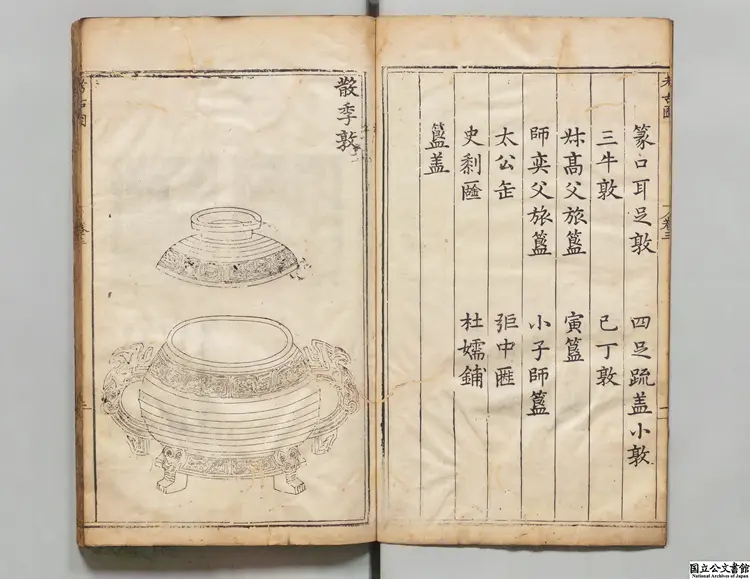 篆口耳足敦
四足疏盖小敦
三牛敦
己丁敦
㳽高父旅簋
寅簋
師奕父旅簋
小子師簋
太公缶
弡中匜
史剩匜
杜嬬鋪
簋盖
散季敦
考古圖
卷三
国立公文書館
National Archives of Japan